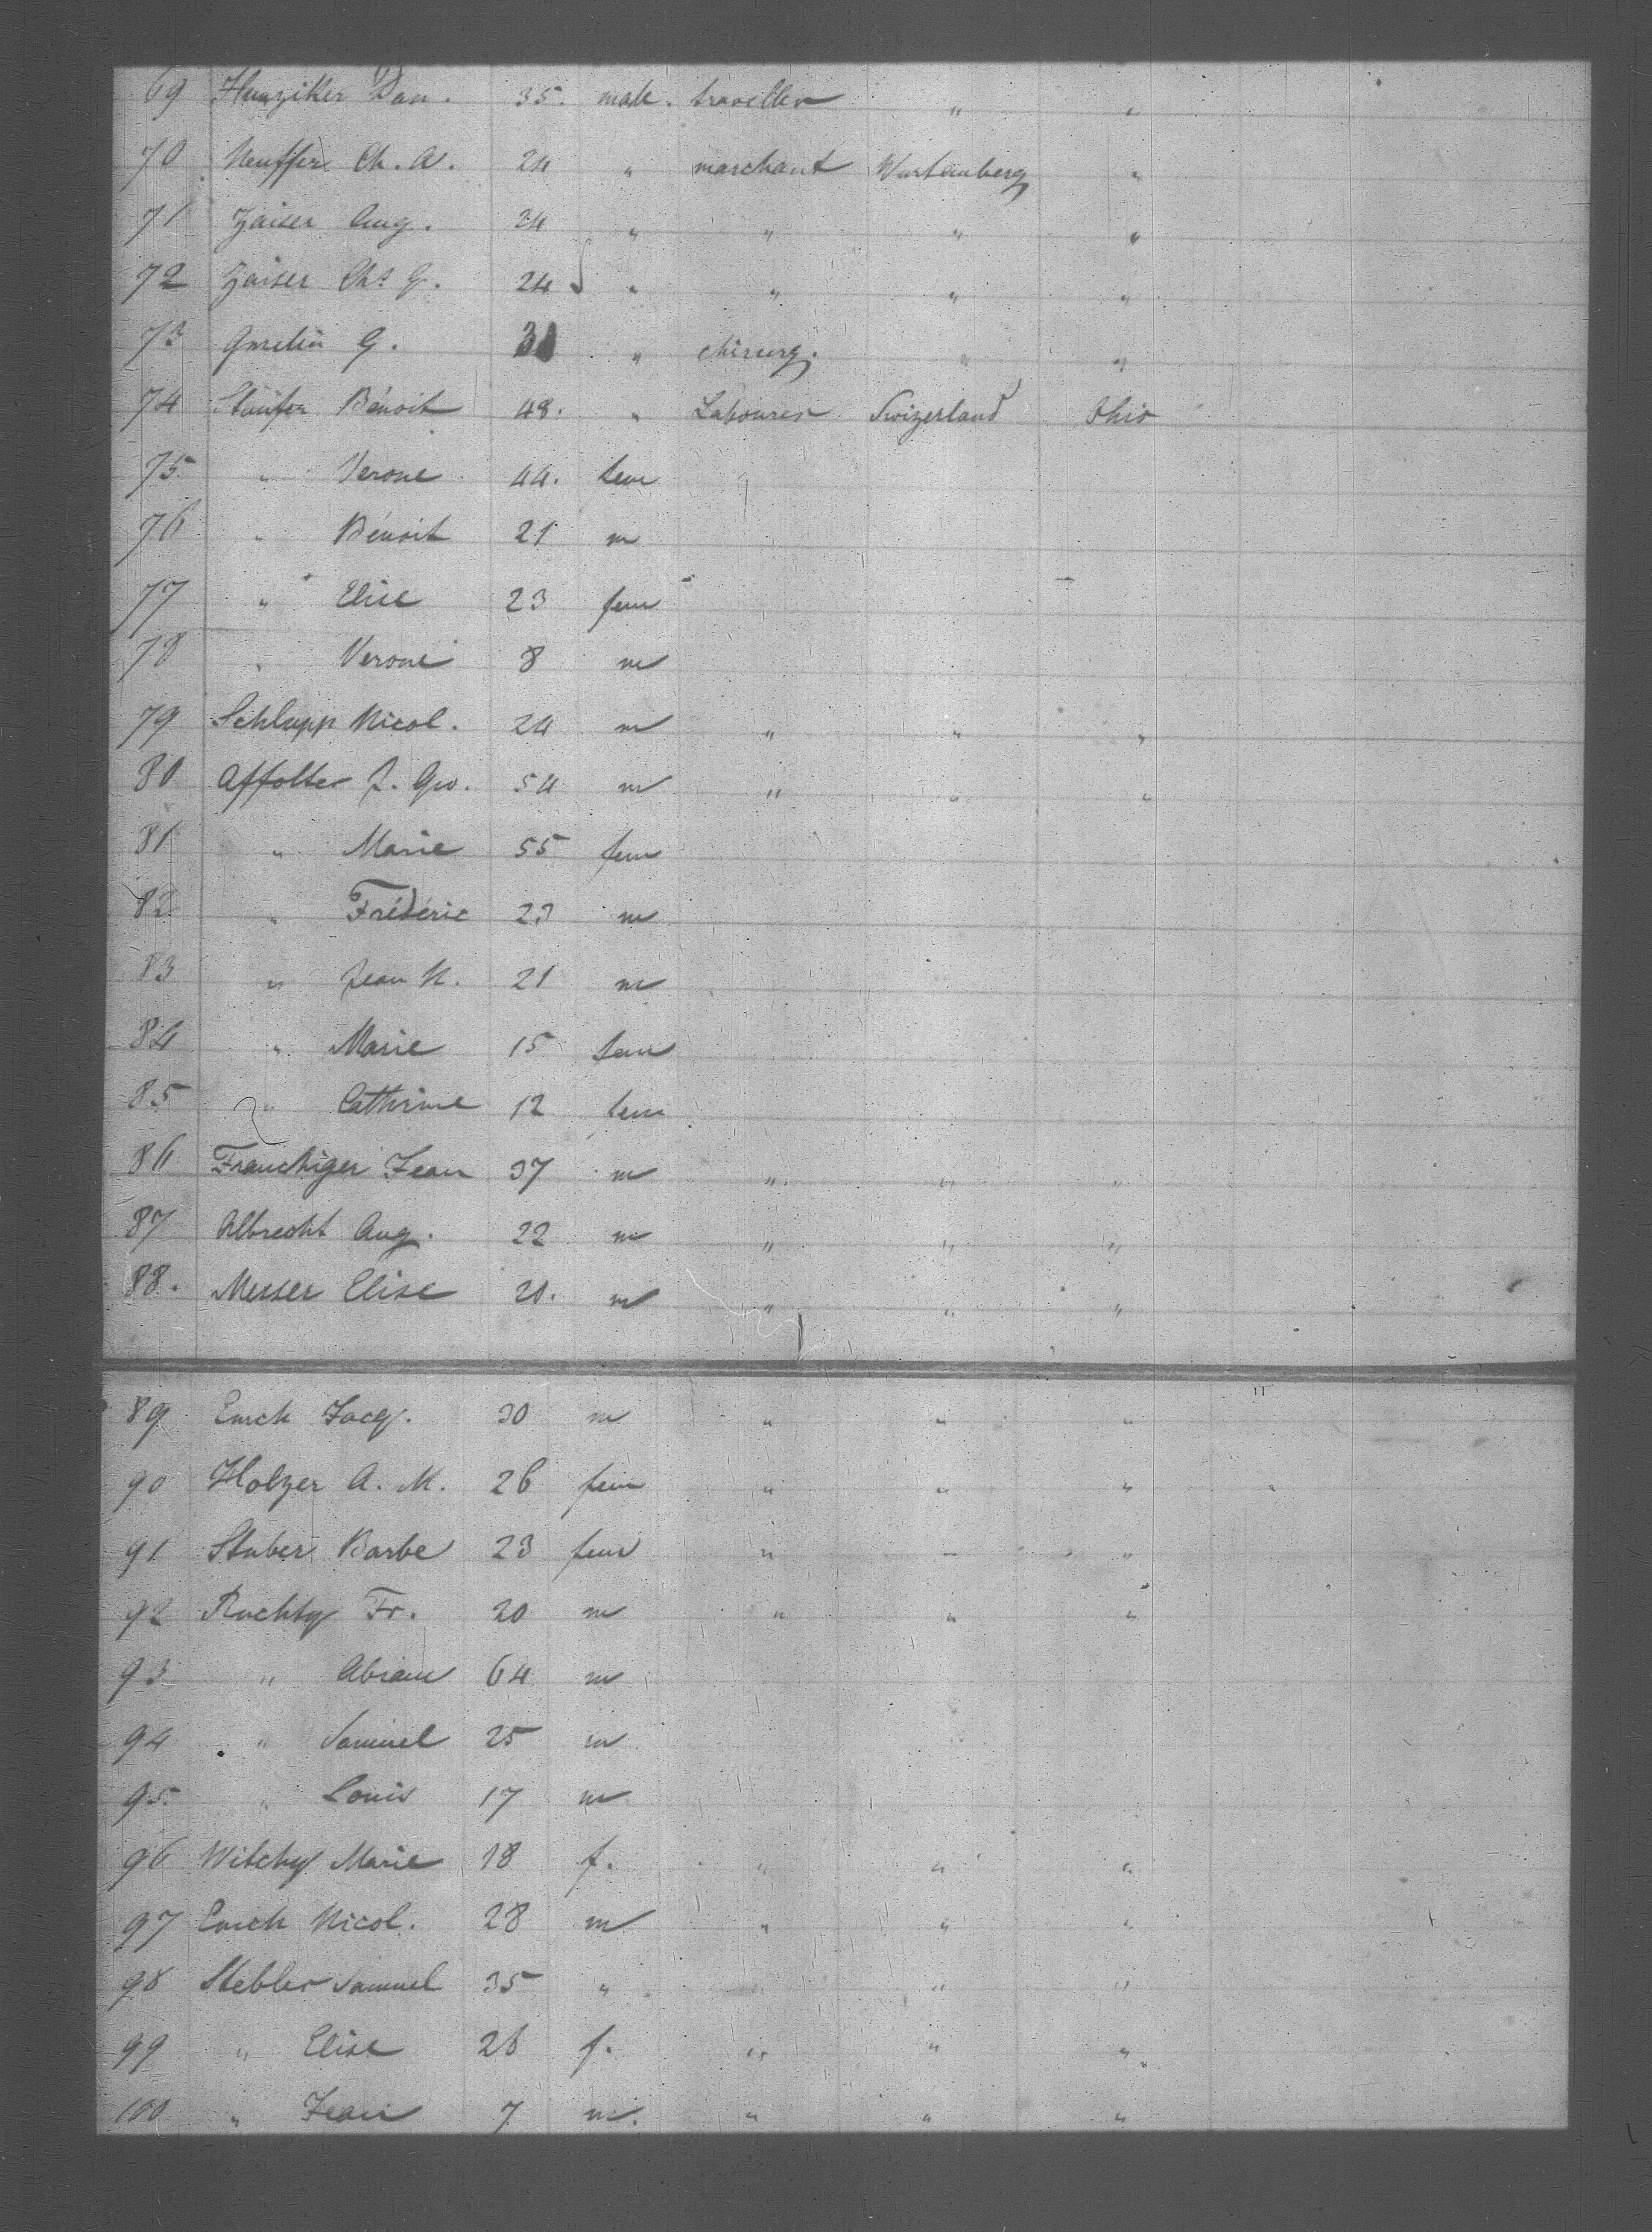 69 Hunziker Dan. 35. male. traveller " "
70 Neuffer Ch. A. 24 " marchant Wurtemberg "
71 Zaiser Aug. 24 " " " "
72 Zaiser Chs G. 24 " " " "
73 Gmelin G. " chirurg. " "
74 Staufer Bénoit 48. " Labourer Swizerland Ohio
75 " Verone 44. fem
76 " Bénoit 21 m
77 " Elise 23 fem
78 " Verone 8 m
79 Schlupp Nicol. 24 m " " "
80 Affolter J. Geo. 54 m " " "
81 " Marie 55 fem
82 " Frédéric 23 m
83 " Jean N. 21 m
84 " Marie 15 fem
85 " Cathrine 12 fem
86 Frauchiger Jean 37 m " " "
87 Albrecht Aug. 22 m " " "
88. Messer Elise 20. m " " "
89 Emch Jacq. 30 m " " "
90 Holzer A. M. 26 fem " " "
91 Stuber Barbe 23 fem " " "
92 Ruchty Fr. 20 m " " "
93 " Abram 64 m
94 " Samuel 25 m
95 " Louis 17 m
96 Witchy Marie 18 f. " " "
97 Emch Nicol. 28 m " " "
98 Stebler Samuel 35 " " " "
99 " Elise 26 f. " " "
100 " Jean 7 m. " " "